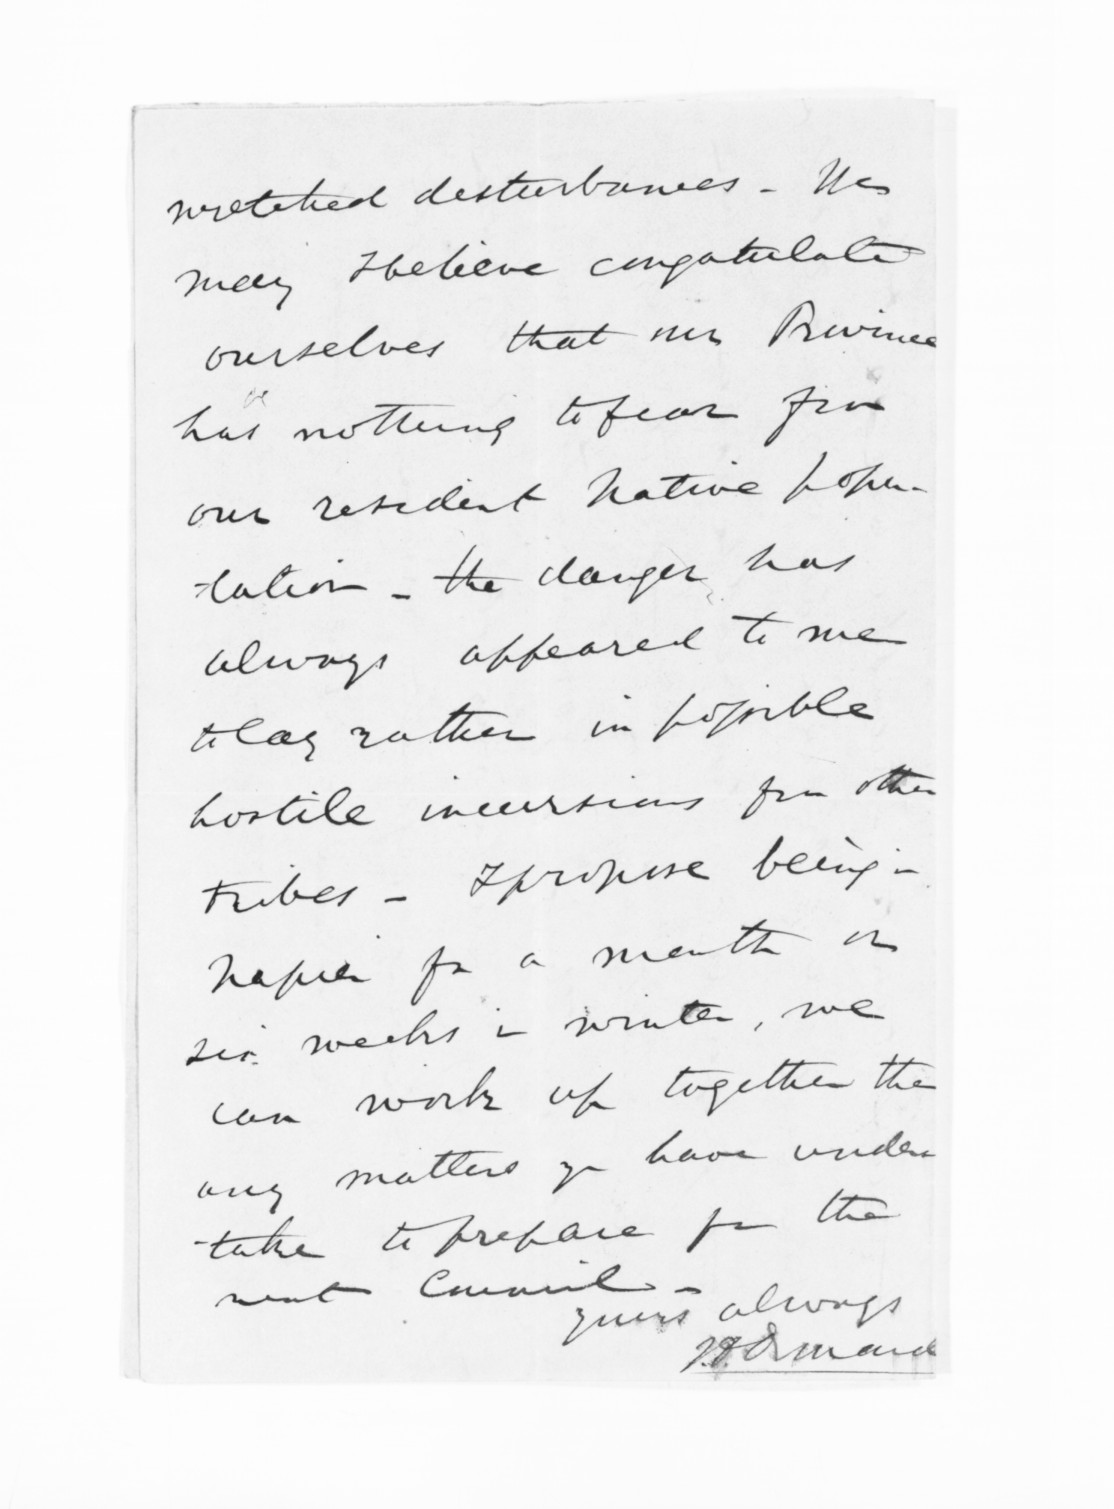 wretched disturbances - We
may I believe congatulate
ourselves that our Province
has nothing to fear from
our resident Native popu-
-lation - the danger has
always appeared to me
to lay rather in possible
hostile incursions from other
tribes - I propose being in
Napier for a month or
six weeks in winter, we
can work up together then
any matters you have under
-take to prepare for the
next Council -
yours always
J.D. Ormond